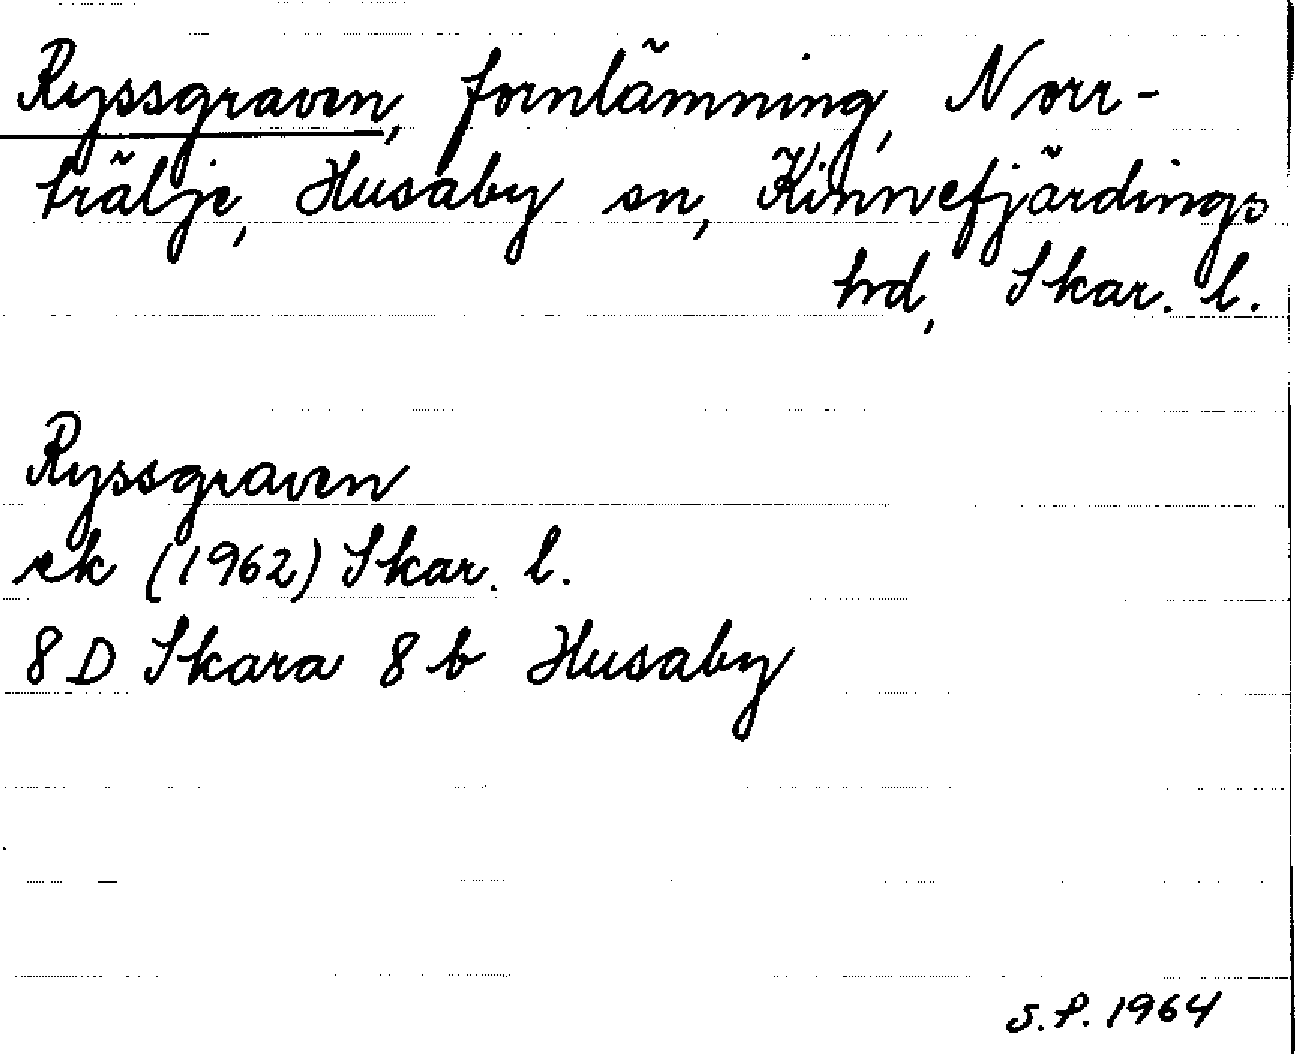 Ryssgraven, fornlämning, Norr-
trälje, Husaby sn, Kinnefjärdings
hd, Skar. l.
Ryssgraven
ek (1962) Skar. l.
8 D Skara 8 b Husaby
S.P. 1964